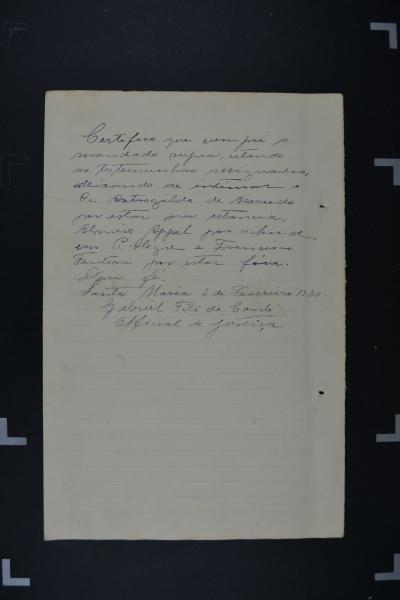 Certifico que cumpri o
mandado supra, citando
as testemunhas assignadas,
deixando de intimar o
Dr de Azevedo
por estar na estancia,
Appel por achar-se
em P. Alegre e Francisco
Fantoni por estar fóra.
Dou fé.
Santa Maria 3 de Fevereiro 1930
Gabriel do
Official de Justiça